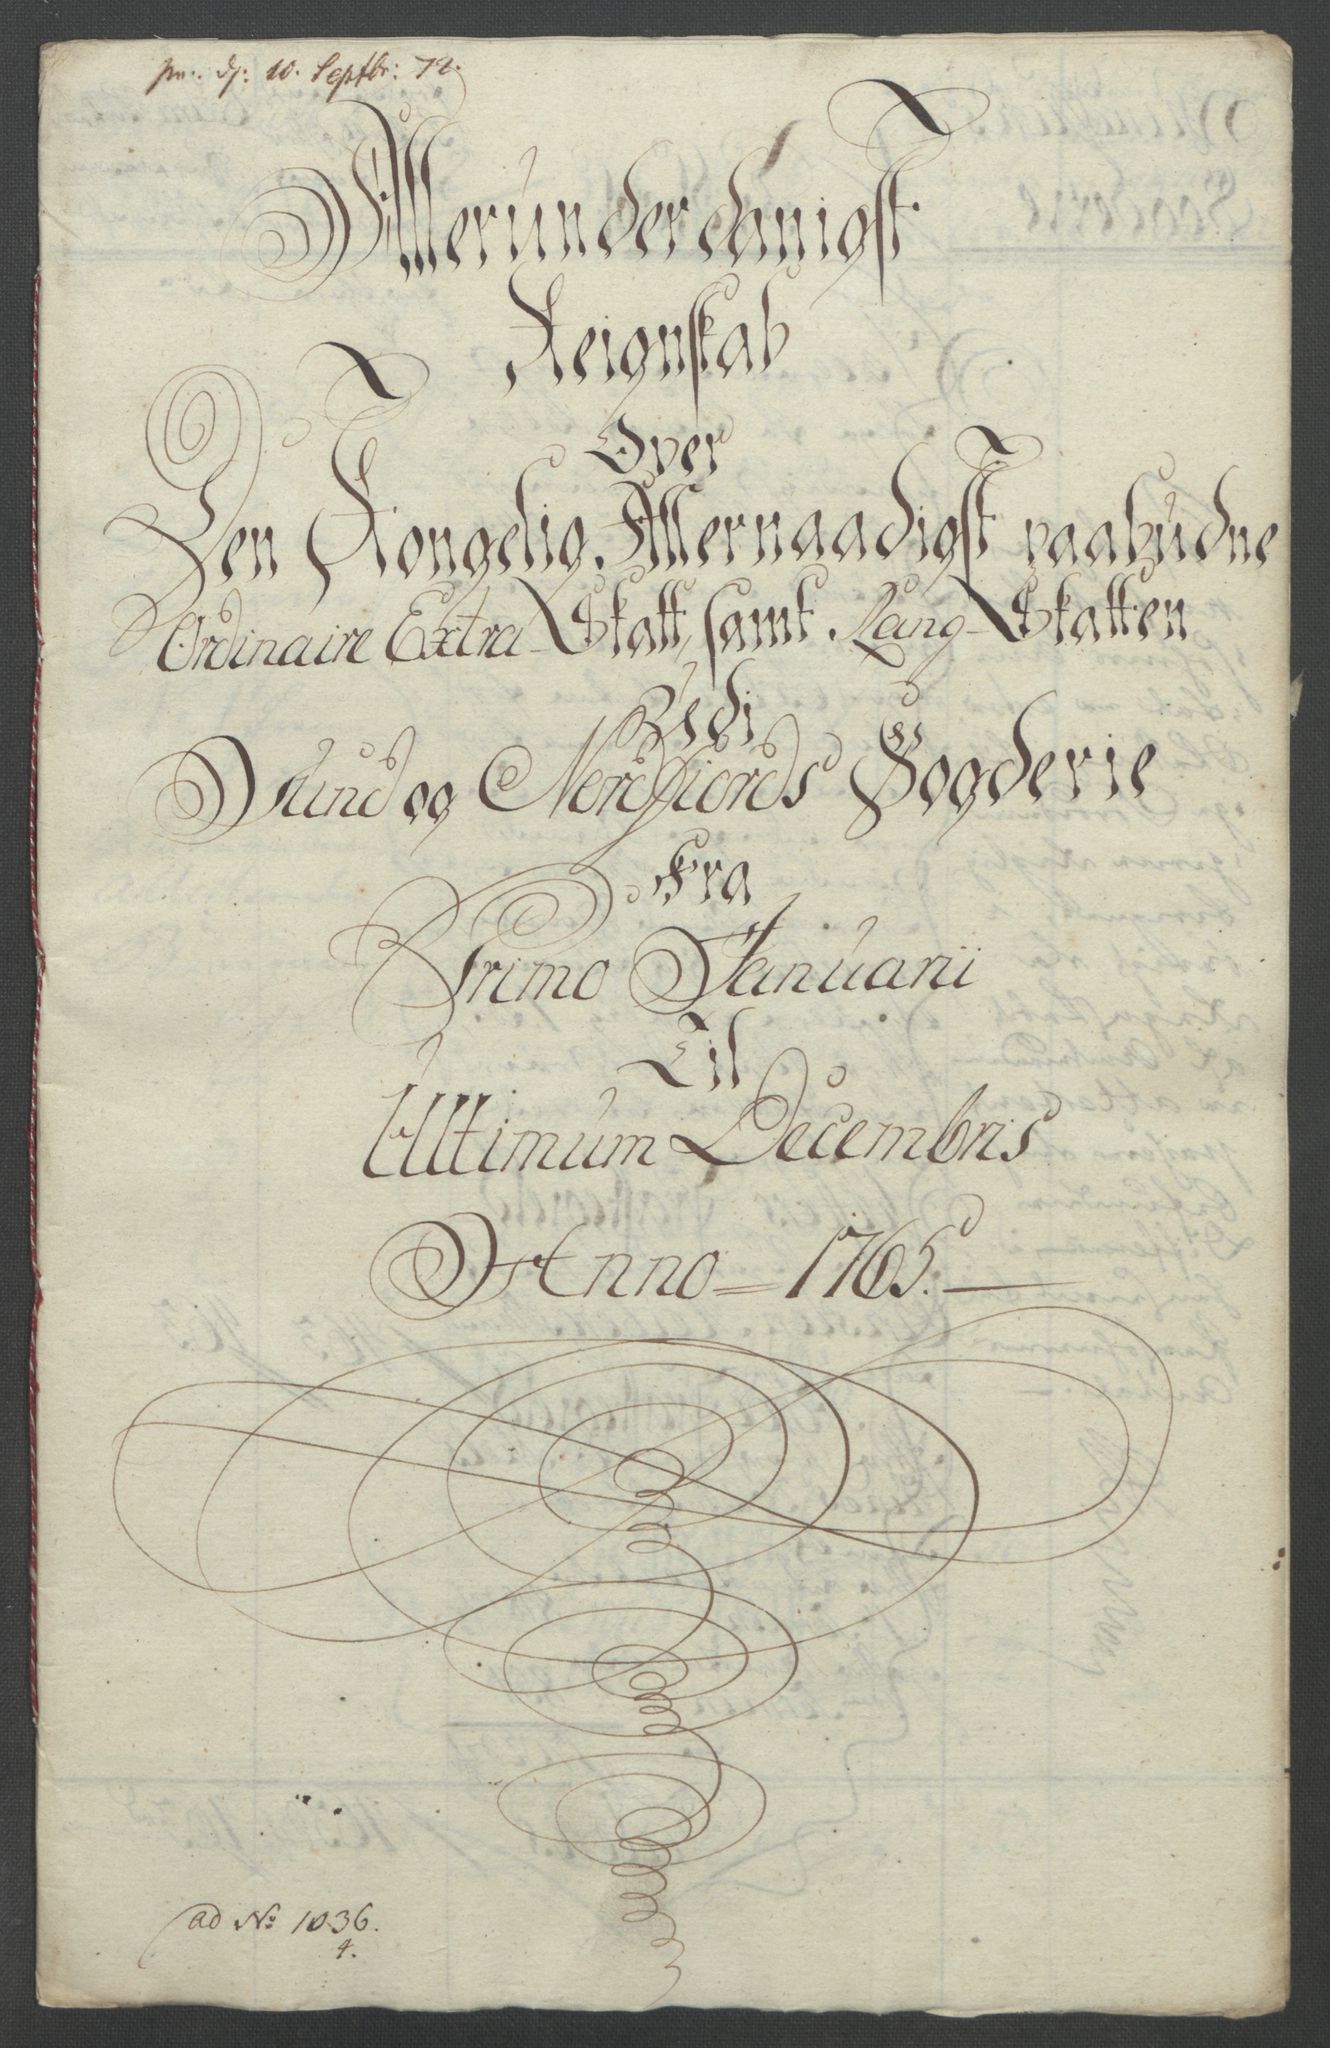 pr: d: 10. Septbr: 72.
Allerunderdanigst
Reignskab
Over
Den Kongelig Allernaadigst paabudne
Ordinaire Extra-Skatt, samt Rang-Skatten
Udi
Sund og Nordfiords Fogderie
Fra
Primo Januarii
Til
Ultimum Decembris
Anno = 1765.
ad No 1036.
4.